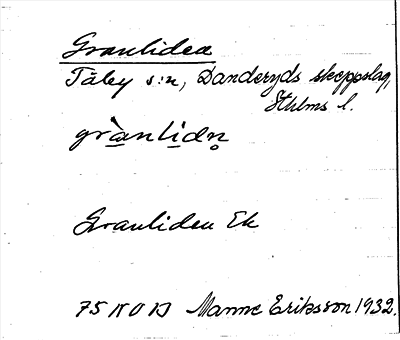 Granliden
Täby s:n, Danderyds skeppslag,
Sthlms l.
grànlidn̥
Granliden Ek
75 N O D Manne Eriksson 1932.